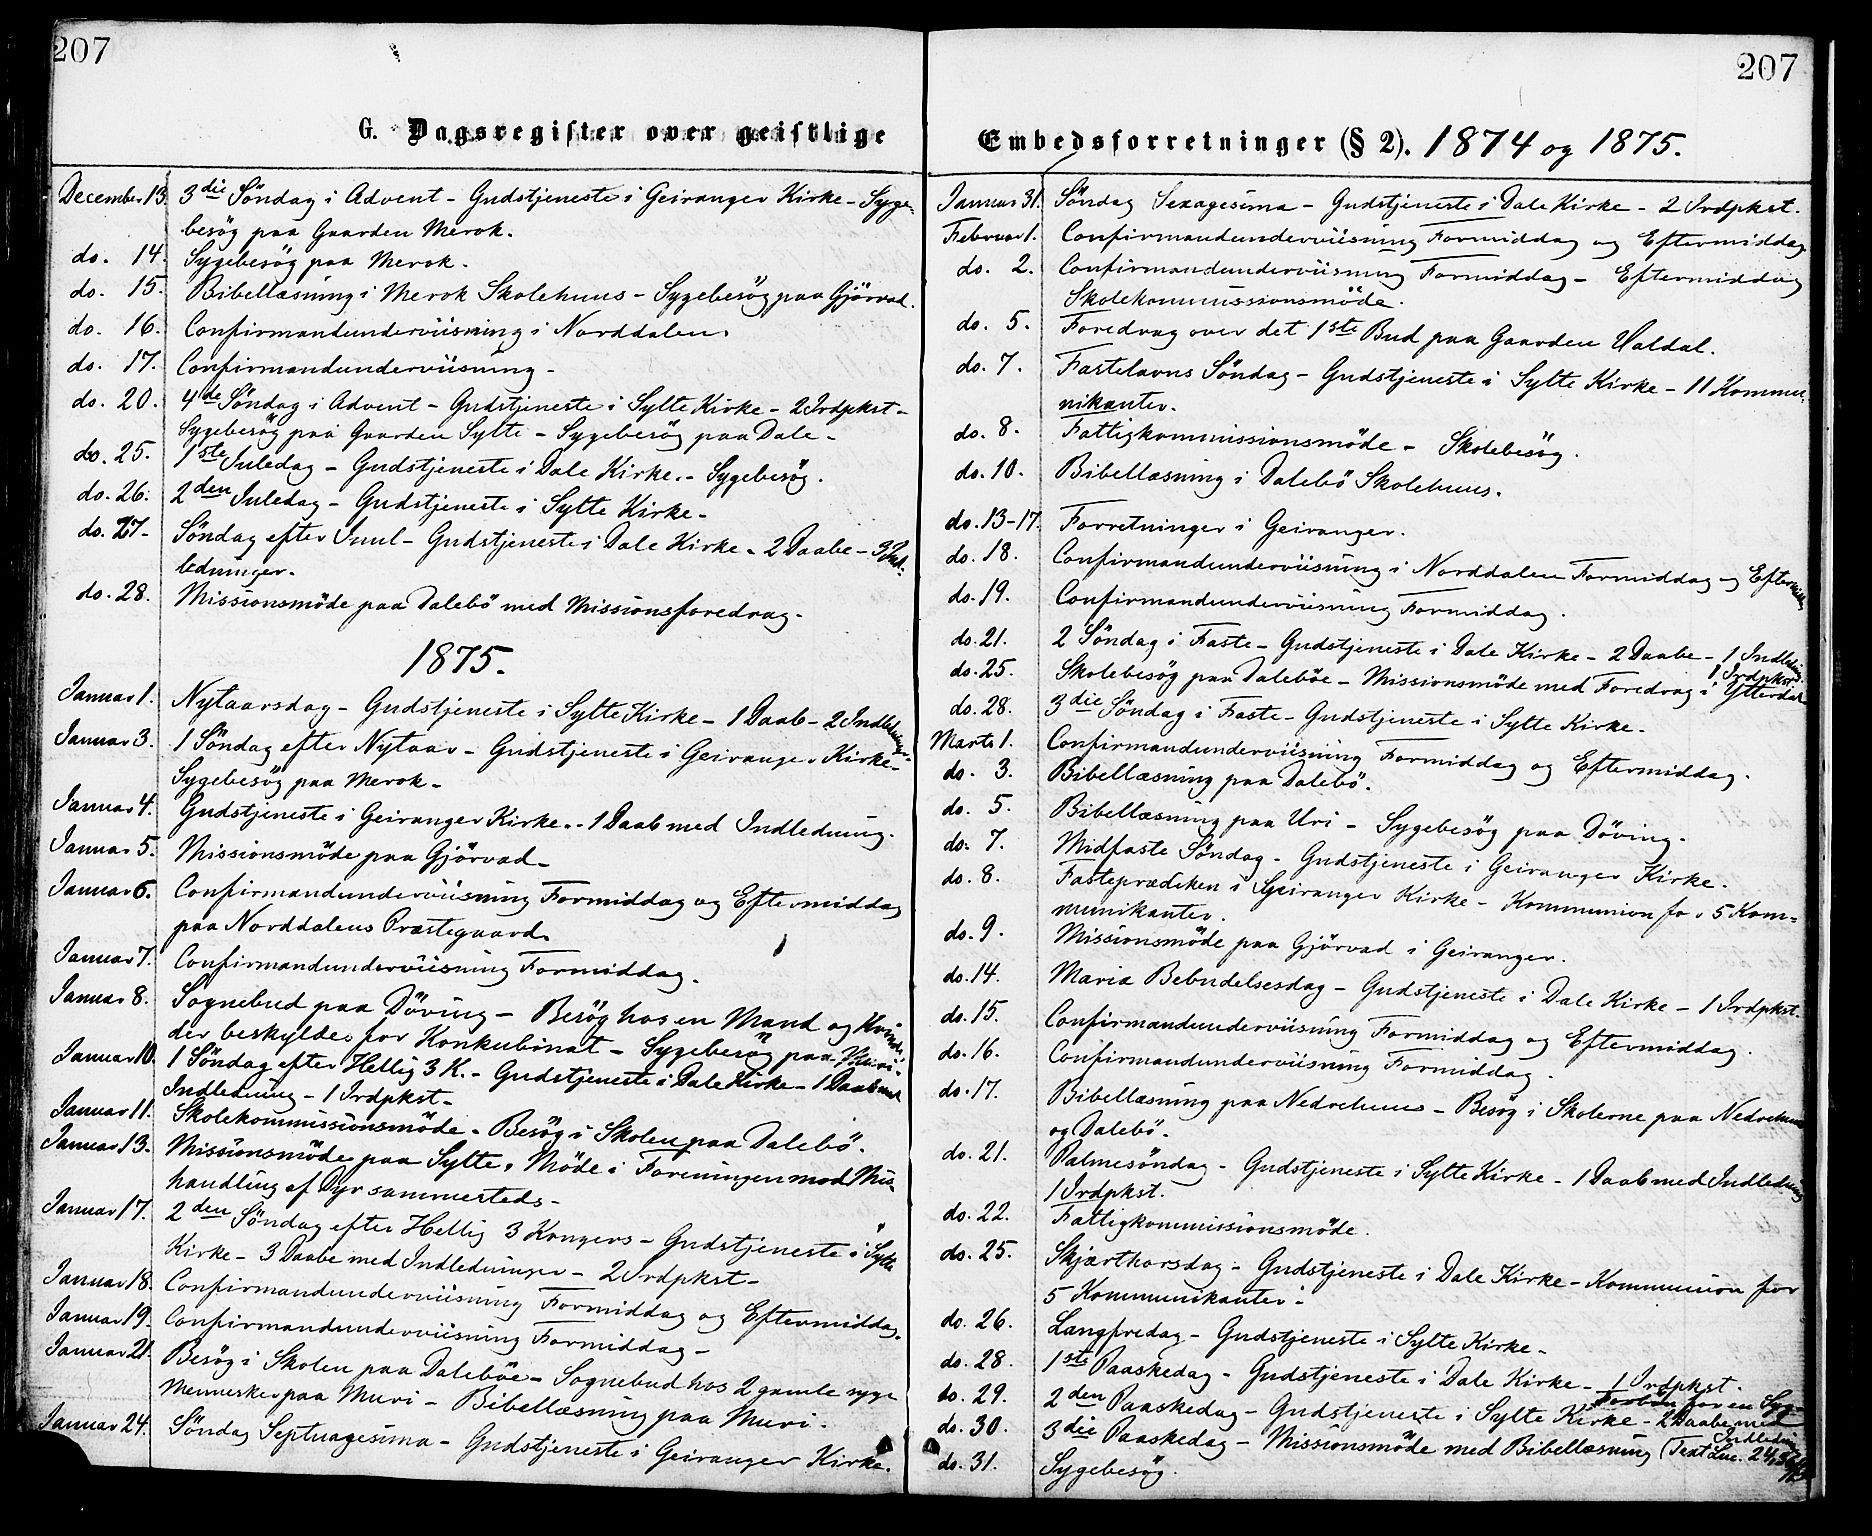 207
G. Dagsregister over geistlige
December 13. 3die Söndag i Advent - Gudstjeneste i Geiranger Kirke - Syge-
besög paa Gaarden Merok.
do. 14. Sygebesög paa Merok.
do. 15. Bibellæsning i Merok Skolehuus - Sygebesög paa Gjörvad.
do. 16. Confirmandunderviisning i Norddalen.
do. 17. Confirmandunderviisning -
do. 20. 4de Söndag i Advent - Gudstjeneste i Sylte Kirke - 2 Irdpkst -
Sygebesög paa Gaarden Sylte - Sygebesög paa Dale -
do. 25. 1ste Juledag - Gudstjeneste i Dale Kirke. - Sygebesög.
do. 26. 2den Juledag - Gudstjeneste i Sylte Kirke -
do. 27. Söndag efter Juul - Gudstjeneste i Dale Kirke - 2 Daabe - 3 Ind-
ledninger.
do. 28. Missionsmöde paa Dalebö med Missionsforedrag -
1875.
Januar 1. Nytaarsdag - Gudstjeneste i Sylte Kirke - 1 Daab - 2 Indledninger
Januar 3. 1 Söndag efter Nytaar - Gudstjeneste i Geiranger Kirke -
Sygebesög paa Merok -
Januar 4. Gudstjeneste i Geiranger Kirke. - 1 Daab med Indledning.
Januar 5. Missionsmöde paa Gjörvad -
Januar 6. Confirmandunderviisning Formiddag og Eftermiddag
paa Norddalens Præstegaard.
Januar 7. Confirmandunderviisning Formiddag.
Januar 8. Sognebud paa Döving - Besög hos en Mand og Kvinde,
der beskyldes for Konkubinat - Sygebesög paa Muri -
Januar 10. 1 Söndag efter Hellig 3 K. - Gudstjeneste i Dale Kirke - 1 Daab med
Indledning - 1 Irdpkst -
Januar 11. Skolekommissionsmöde - Besög i Skolen paa Dalebö.
Januar 13. Missionsmöde paa Sylte. Möde i Foreningen mod Mis-
handling af Dyr sammesteds -
Januar 17. 2den Söndag efter Hellig 3 Kongers - Gudstjeneste i Sylte
Kirke - 3 Daabe med Indledninger - 2 Irdpkst -
Januar 18. Confirmandunderviisning Formiddag og Eftermiddag.
Januar 19. Confirmandunderviisning Formiddag -
Januar 21. Besög i Skolen paa Daleböe - Sognebud hos 2 gamle syge
Mennesker paa Muri - Bibellæsning paa Muri -
Januar 24. Söndag Septuagesima - Gudstjeneste i Geiranger Kirke.
207
Embedsforretninger (§ 2). 1874 og 1875.
Januar 31. Söndag Sexagesima - Gudstjeneste i Dale Kirke - 2 Irdpkst.
Februar 1. Confirmandunderviisning Formiddag og Eftermiddag
do. 2. Confirmandunderviisning Formiddag - Eftermiddag
Skolekommissionsmöde.
do. 5. Foredrag over det 1ste Bud paa Gaarden Ualdal.
do. 7. Fastelavns Söndag - Gudstjeneste i Sylte Kirke - 11 Kommu-
nikanter.
do. 8. Fattigkommissionsmöde - Skolebesög.
do. 10. Bibellæsning i Dalebö Skolehuus.
do. 13-17. Forretninger i Geiranger.
do. 18. Confirmandunderviisning i Norddalen Formiddag og Eftermiddag
do. 19. Confirmandunderviisning Formiddag.
do. 21. 2 Söndag i Faste - Gudstjeneste i Dale Kirke - 2 Daabe - 1 Indledning
1 Irdpkst.
do. 25. Skolebesög paa Daleböe - Missionsmöde med Foredrag i Ytterdal
do. 28. 3die Söndag i Faste - Gudstjeneste i Sylte Kirke.
Marts 1. Confirmandunderviisning Formiddag og Eftermiddag.
do. 3. Bibellæsning paa Dalebö.
do. 5. Bibellæsning paa Uri - Sygebesög paa Döving.
do. 7. Midfaste Söndag - Gudstjeneste i Geiranger Kirke.
do. 8. Fasteprædiken i Geiranger Kirke - Kommunion for 5 Kom-
munikanter.
do. 9. Missionsmöde paa Gjörvad i Geiranger.
do. 14. Maria Bebudelsesdag - Gudstjeneste i Dale Kirke - 1 Irdpkst.
do. 15. Confirmandunderviisning Formiddag og Eftermiddag.
do. 16. Confirmandunderviisning Formiddag.
do. 17. Bibellæsning paa Nedrehuus - Besög i Skolerne paa Nedrehuus
og Dalebö.
do. 21. Palmesöndag - Gudstjeneste i Sylte Kirke - 1 Daab med Indledning
1 Irdpkst.
do. 22. Fattigkommissionsmöde.
do. 25. Skjærthorsdag - Gudstjeneste i Dale Kirke - Kommunion for
5 Kommunikanter -
do. 26. Langfredag - Gudstjeneste i Sylte Kirke -
do. 28. 1ste Paaskedag - Gudstjeneste i Dale Kirke - 1 Irdpkst.
for en Syg -
do. 29. 2den Paaskedag - Gudstjeneste i Sylte Kirke - 2 Daabe med
Indledning
do. 30. 3die Paaskedag - Missionsmöde med Bibellæsning (Text Luc. 24,
do. 31. Sygebesög.